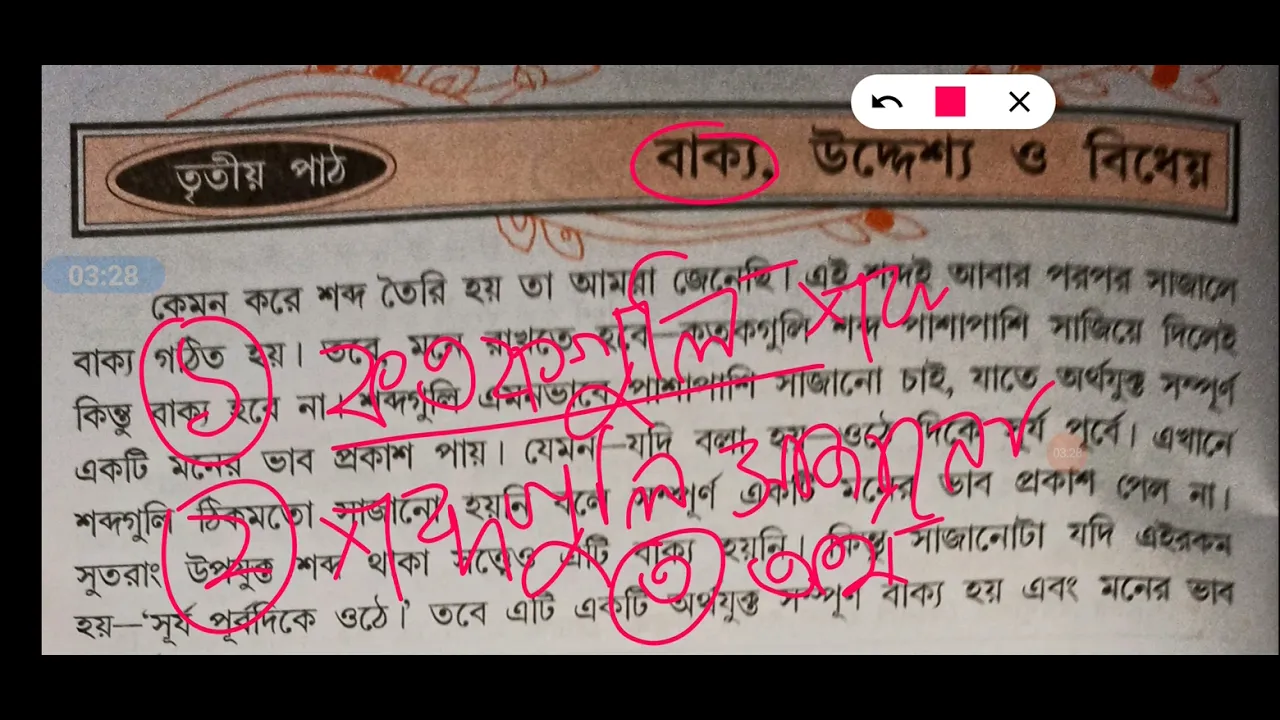 তৃতীয় পাঠ
বাক্য, উদ্দেশ্য ও বিধেয়
03:28
কেমন করে শব্দ তৈরি হয় তা আমরা জেনেছি। এই শব্দই আবার পরপর সাজালে
বাক্য গঠিত হয়। তবে, মনে রাখতে হবে—কতকগুলি শব্দ পাশাপাশি সাজিয়ে দিলেই
কিন্তু বাক্য হবে না। শব্দগুলি এমনভাবে পাশাপাশি সাজানো চাই, যাতে অর্থযুক্ত সম্পূর্ণ
একটি মনের ভাব প্রকাশ পায়। যেমন—যদি বলা হয়—ওঠে দিকে সূর্য পূর্বে। এখানে
03:28
শব্দগুলি ঠিকমতো সাজানো হয়নি বলে সম্পূর্ণ একটি মনের ভাব প্রকাশ পেল না।
সুতরাং উপযুক্ত শব্দ থাকা সত্ত্বেও এটি বাক্য হয়নি। কিন্তু সাজানোটা যদি এইরকম
হয়—‘সূর্য পূর্বদিকে ওঠে।’ তবে এটি একটি অর্থযুক্ত সম্পূর্ণ বাক্য হয় এবং মনের ভাব
১ কতকগুলি শব্দ
২ শব্দগুলি সাজানো
৩